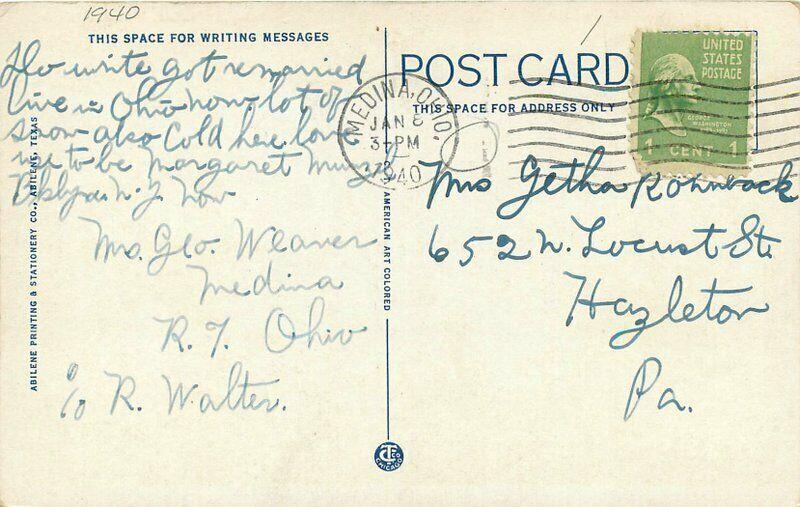 1940
THIS SPACE FOR WRITING MESSAGES
Do write got remarried
live in Ohio now lot of
snow also Cold here. love
use to be Margaret
Bklyn N.Y. now
Mrs. Geo. Weaver
Medina
R.7. Ohio
c/o R. Walter.
ABILENE PRINTING & STATIONERY CO., ABILENE, TEXAS
AMERICAN ART COLORED
CT CO CHICAGO
POST CARD
THIS SPACE FOR ADDRESS ONLY
MEDINA, OHIO.
JAN 8
3-PM
1940
UNITED
STATES
POSTAGE
GEORGE
WASHINGTON
1 CENT 1
Mrs Getha Rohrback
652 N. Locust St.
Hazleton
Pa.